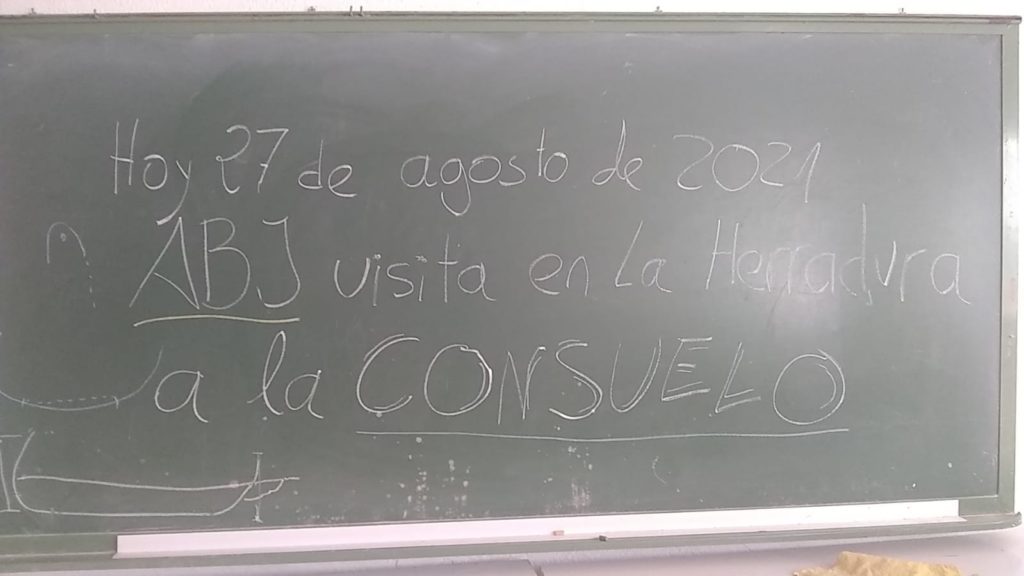 Hoy 27 de agosto de 2021
ABJ visita en La Herradura
a la CONSUELO